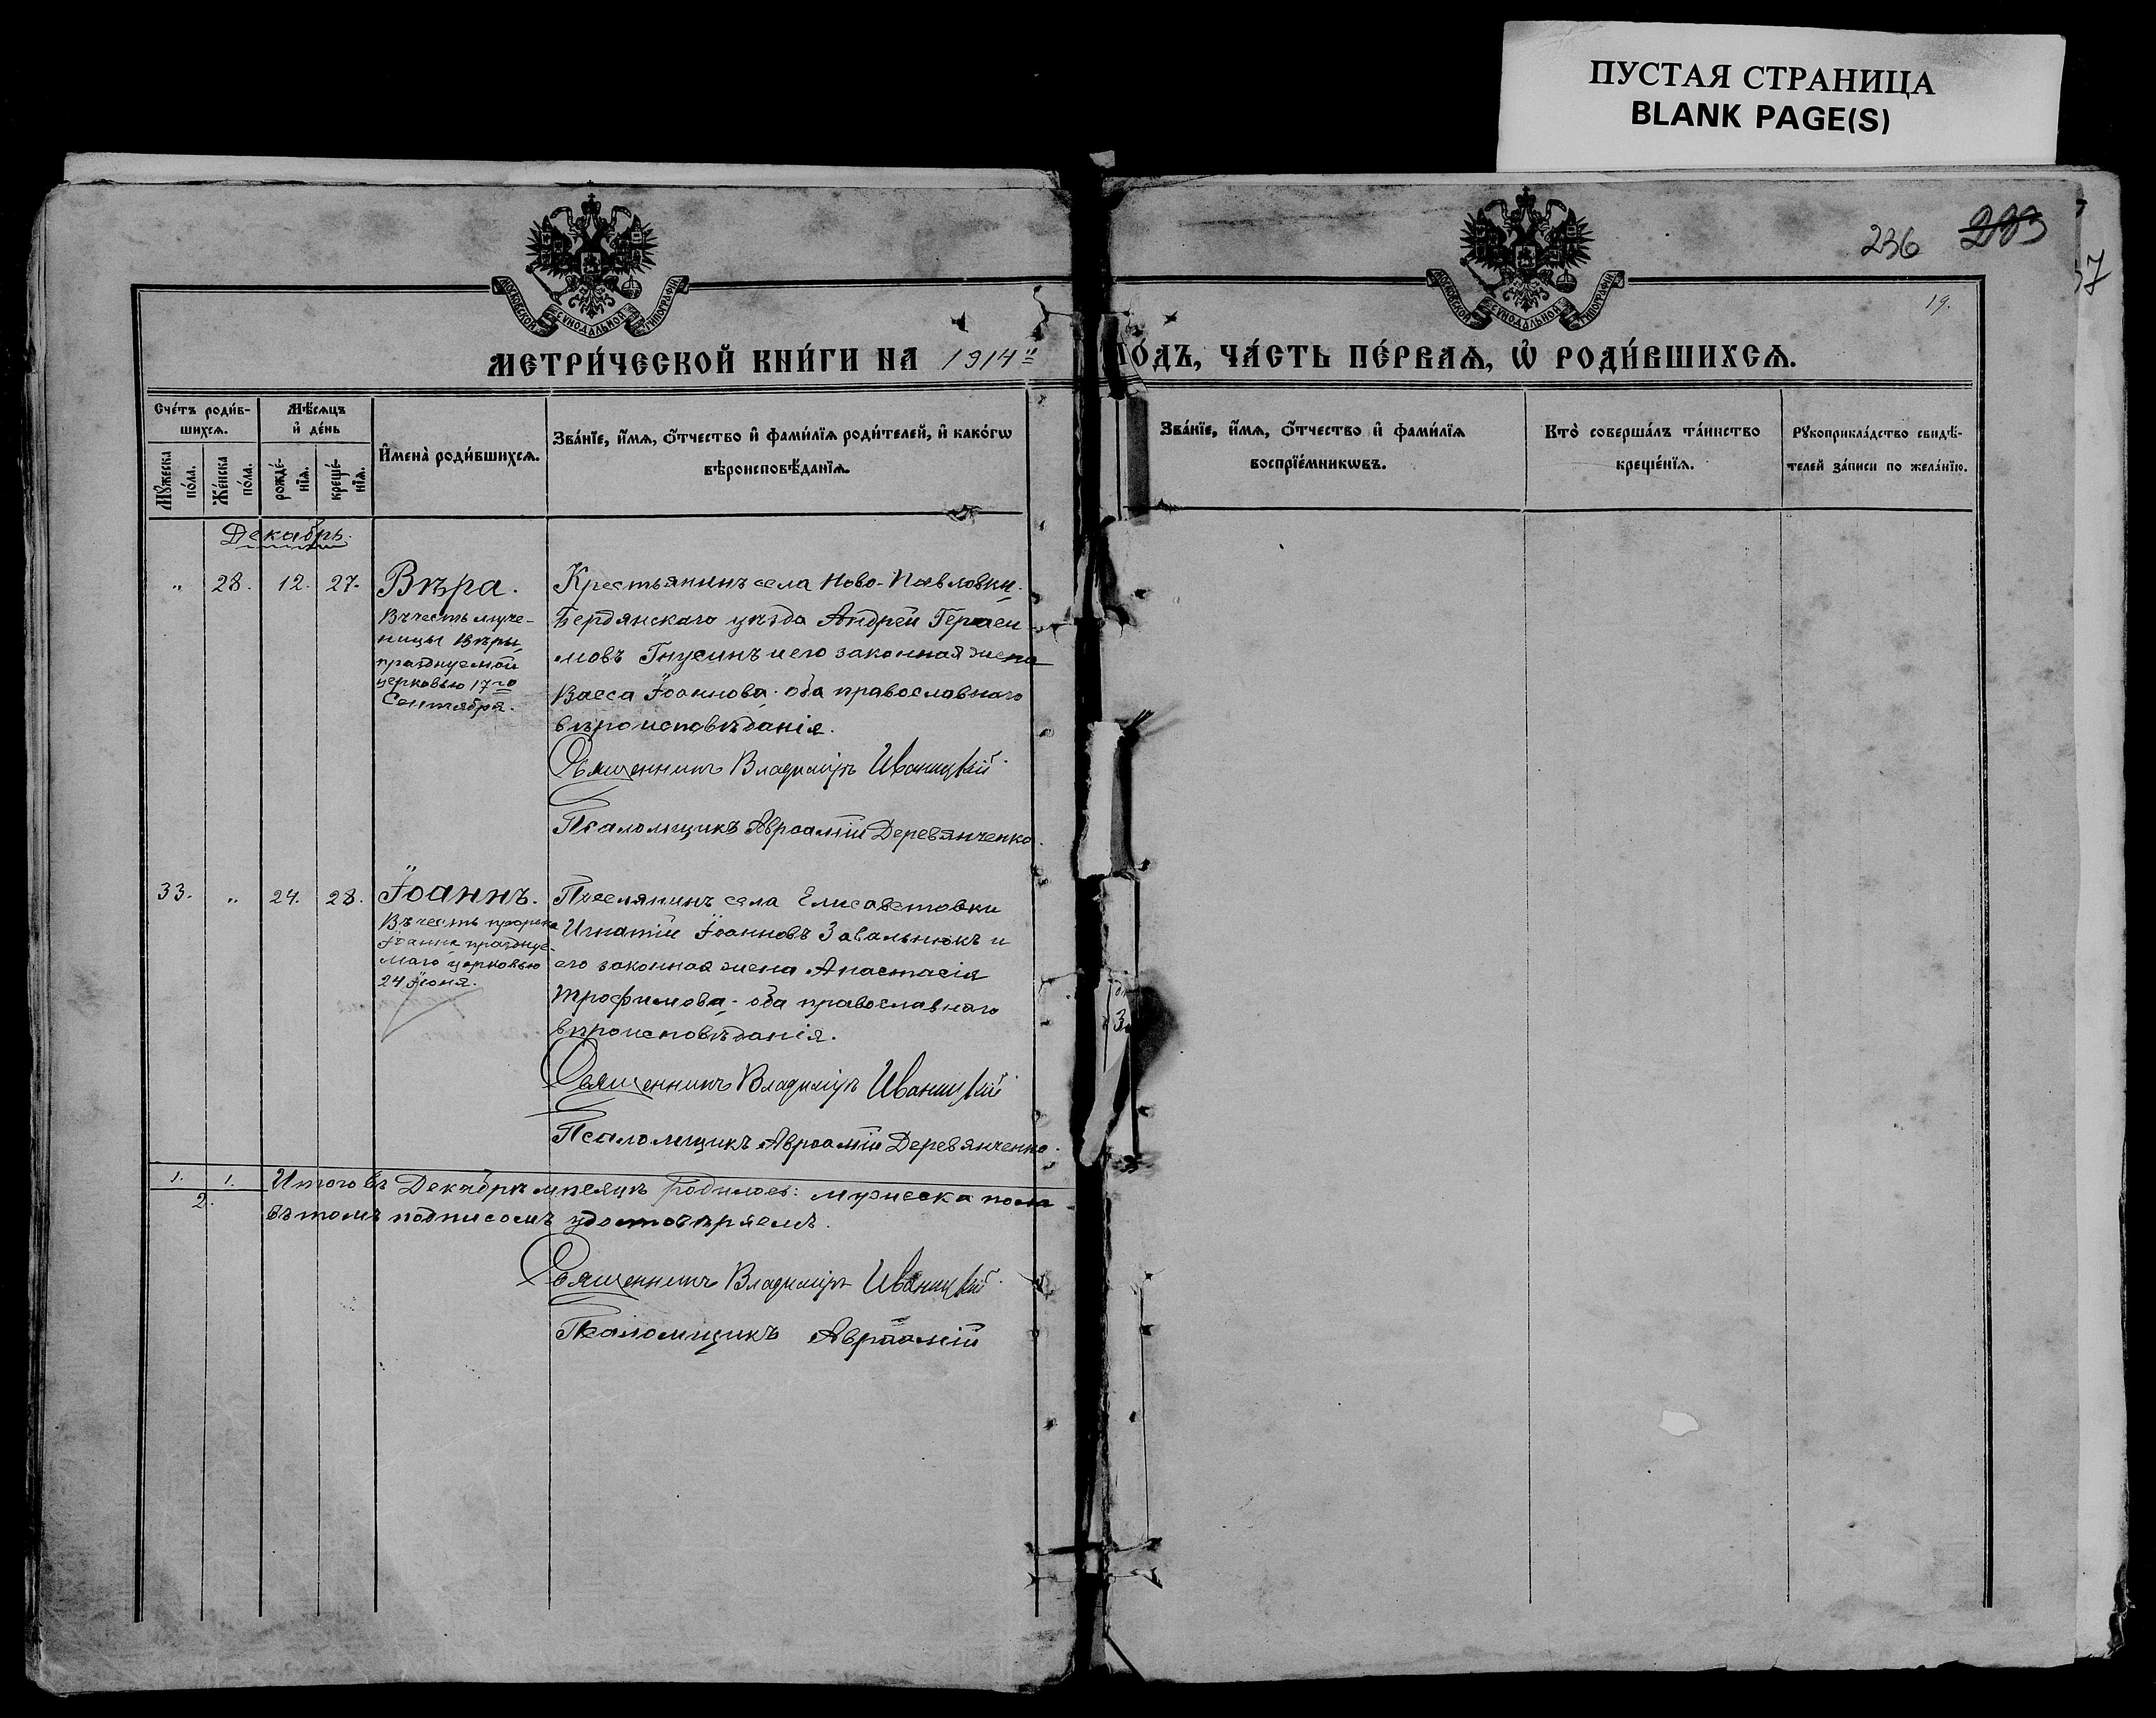 ПУСТАЯ СТРАНИЦА
BLANK PAGE(S)
МОСКОВСКОЙ СѴНОДАЛЬНОЙ ТИПОГРАФІИ
МОСКОВСКОЙ СѴНОДАЛЬНОЙ ТИПОГРАФІИ
236
19.
МЕТРИ́ЧЕСКОЙ КНИ́ГИ НА 1914й
ГО́ДЪ, ЧА́СТЬ ПЕ́РВАѦ, Ѡ҆ РОДИ́ВШИХСѦ.
Сче́тъ роди́в-
шихсѧ.
Мꙋ́жеска по́ла.
Же́нска по́ла.
Мѣ́сѧцъ
и҆ де́нь
рожде́-
нїѧ.
креще́-
нїѧ.
И҆мена̀ роди́вшихсѧ.
Зва́нїе, и҆́мѧ, ѻ҆́тчество и҆ фами́лїѧ роди́телей, и҆ како́гѡ
вѣроисповѣ́данїѧ.
Зва́нїе, и҆́мѧ, ѻ҆́тчество и҆ фами́лїѧ
воспрїе́мникѡвъ.
Кто̀ соверша́лъ та́инство
креще́нїѧ.
Рꙋкоприкла́дство свидѣ́-
телей за́писи по жела́нїю.
Декабрь.
" 28. 12. 27. Вѣра.
Въ честь муче-
ницы Вѣры,
празднуемой
церковью 17го
Сентября.
Крестьянинъ села Ново-Павловки,
Бердянскаго уѣзда Андрей Гераси
мовъ Гнусинъ и его законная жена
Васса Іоаннова; оба православнаго
вѣроисповѣданія.
Священникъ Владиміръ Иваницкій
Псаломщикъ Авраамій Деревянченко.
33. " 24. 28. Іоаннъ.
Въ честь пророка
Іоанна празднуе-
маго церковью
24 Іюня.
Поселянинъ села Елисаветовки
Игнатій Іоанновъ Завальнюкъ и
его законная жена Анастасія
Трофимова; оба православнаго
вѣроисповѣданія.
Священникъ Владиміръ Иваницкій
Псаломщикъ Авраамій Деревянченко.
1. 1. Итого въ Декабрѣ мѣсяцѣ родилось: мужеска пола
2.
въ томъ подписомъ удостовѣряемъ.
Священникъ Владиміръ Иваницкій
Псаломщикъ Авраамій